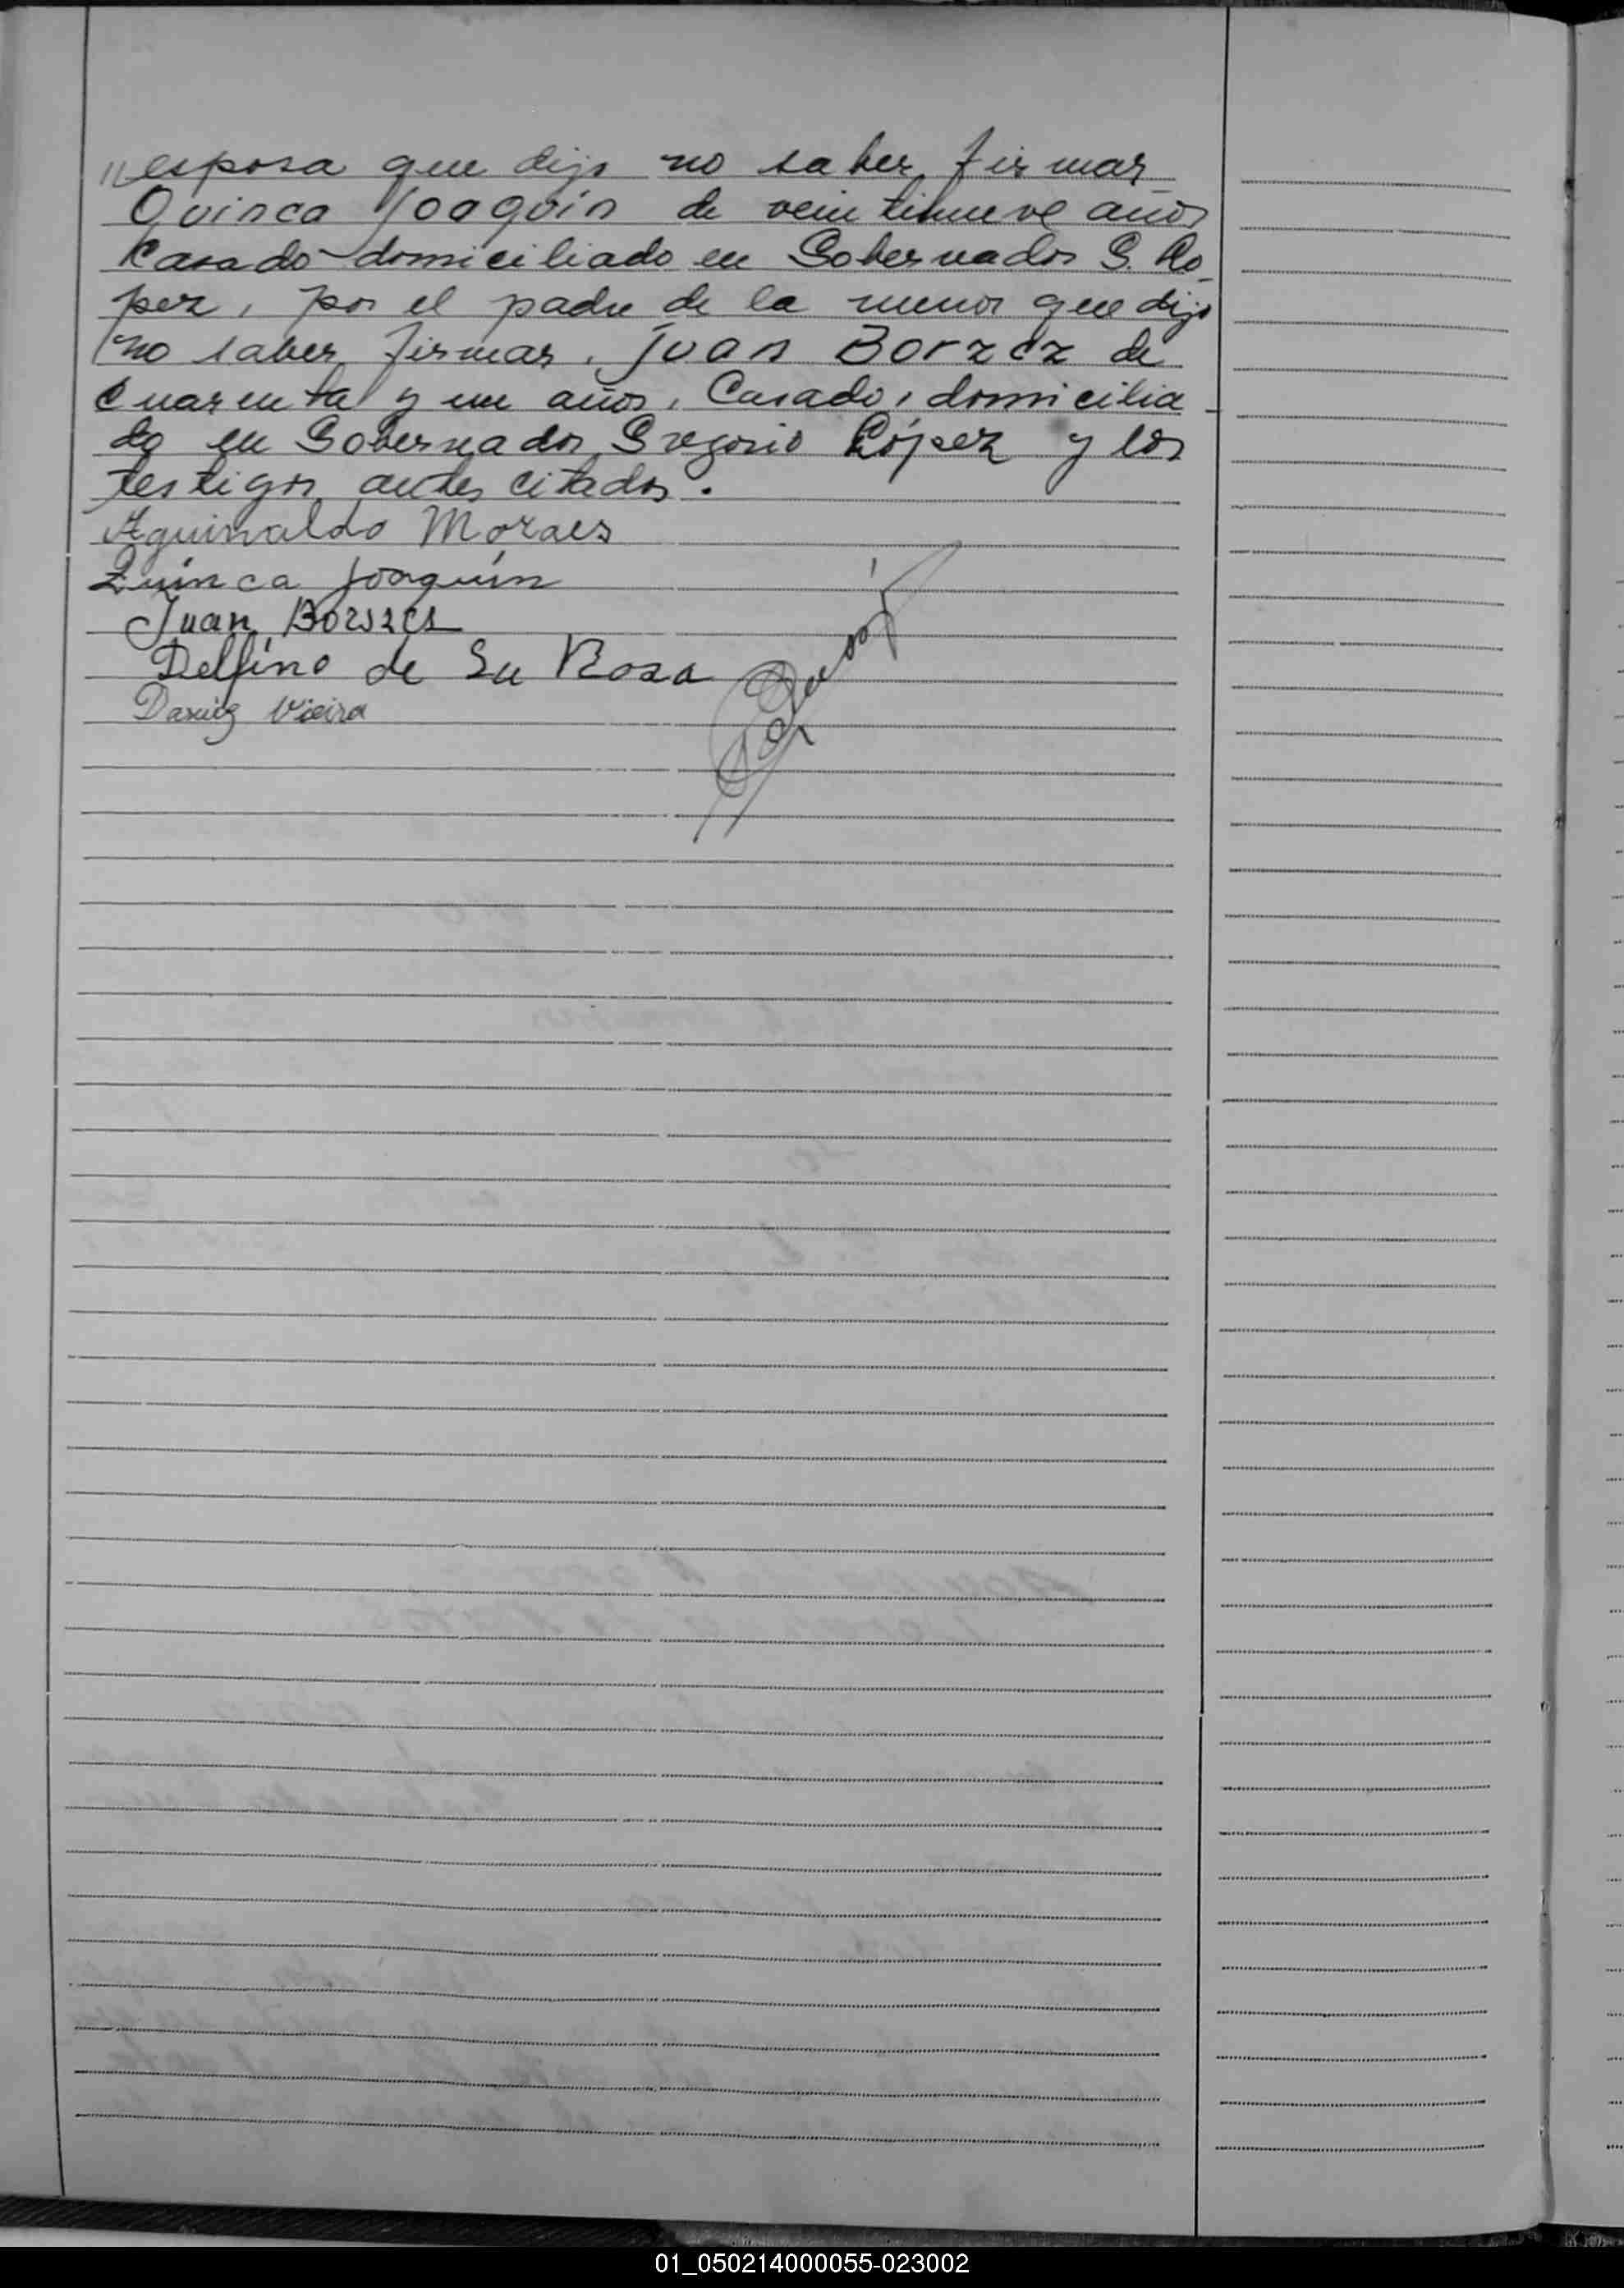 "esposa que dijo no saber firmar
Quinca Joaquín de veintinueve años
Casado domiciliado en Gobernador G. Ló-
pez, por el padre de la menor que dijo
no saber firmar. Juan Borzez de
Cuarenta y un años, Casado, domicilia-
do en Gobernador Gregorio López y los
testigos antes citados.
Aguinaldo Moraes
Quinca Joaquin
Juan
Delfino de Su Rosa
Vieira
01_050214000055-023002